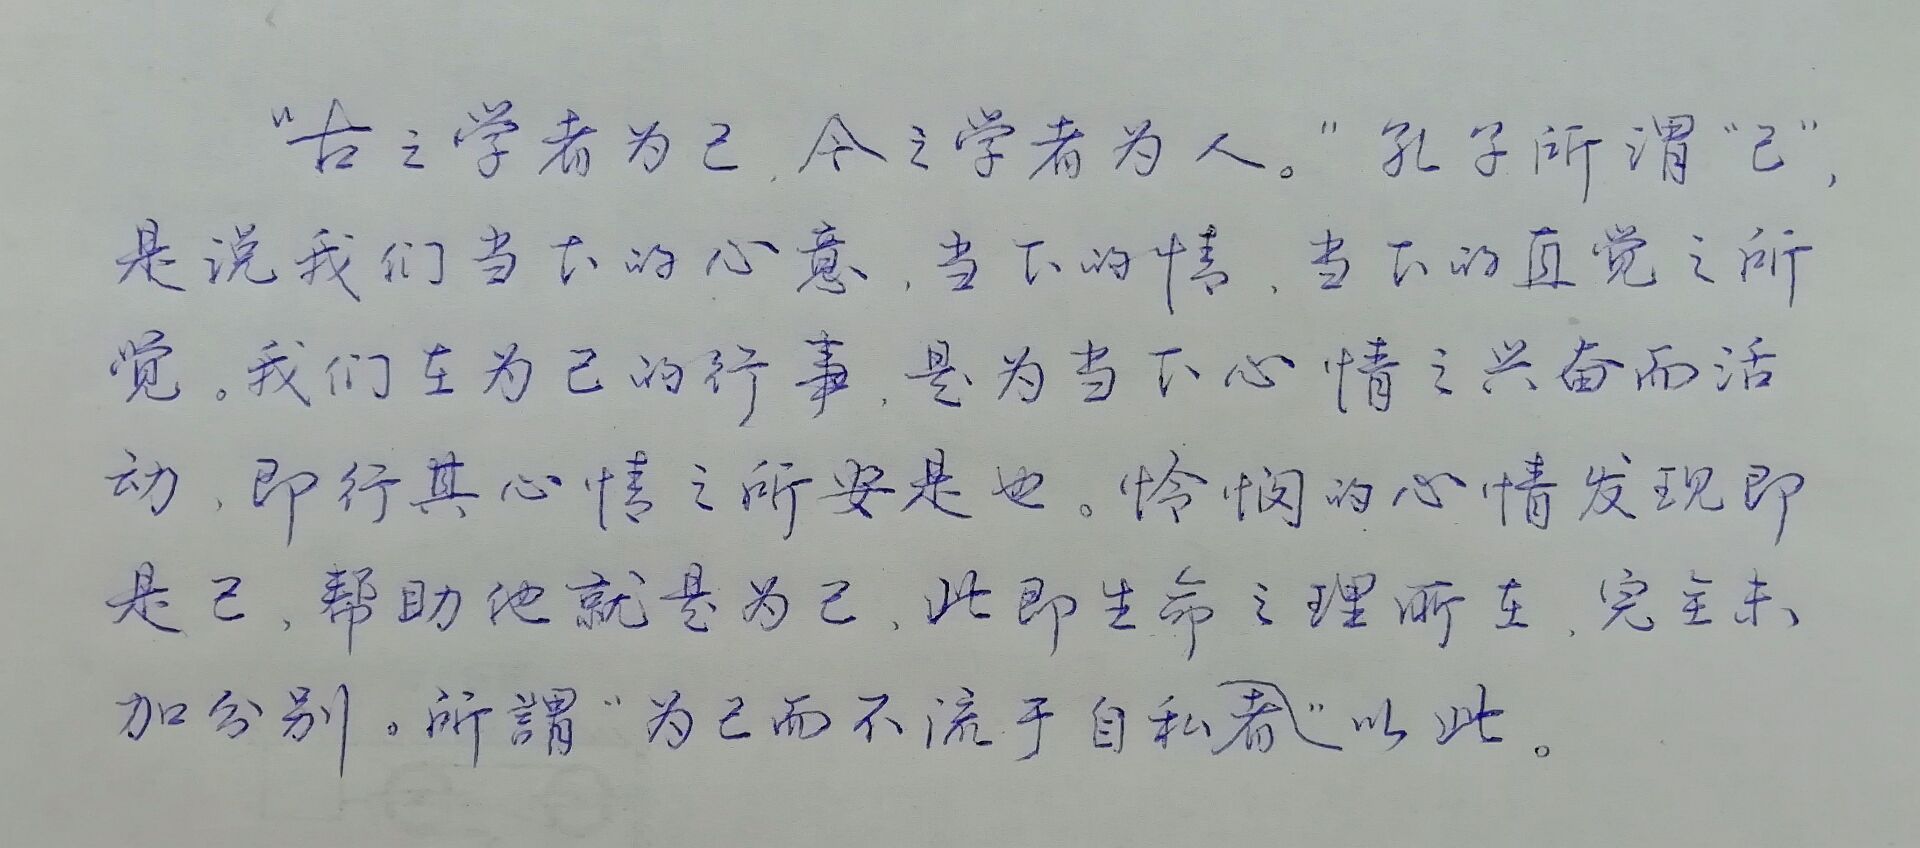 "古之学者为己，今之学者为人。"孔子所谓"己"，
是说我们当下的心意，当下的情，当下的直觉之所
觉。我们在为己的行事，是为当下心情之兴奋而活
动，即行其心情之所安是也。怜悯的心情发现即
是己，帮助他就是为己，此即生命之理所在，完全未
加分别。所謂"为己而不流于自私者"以此。